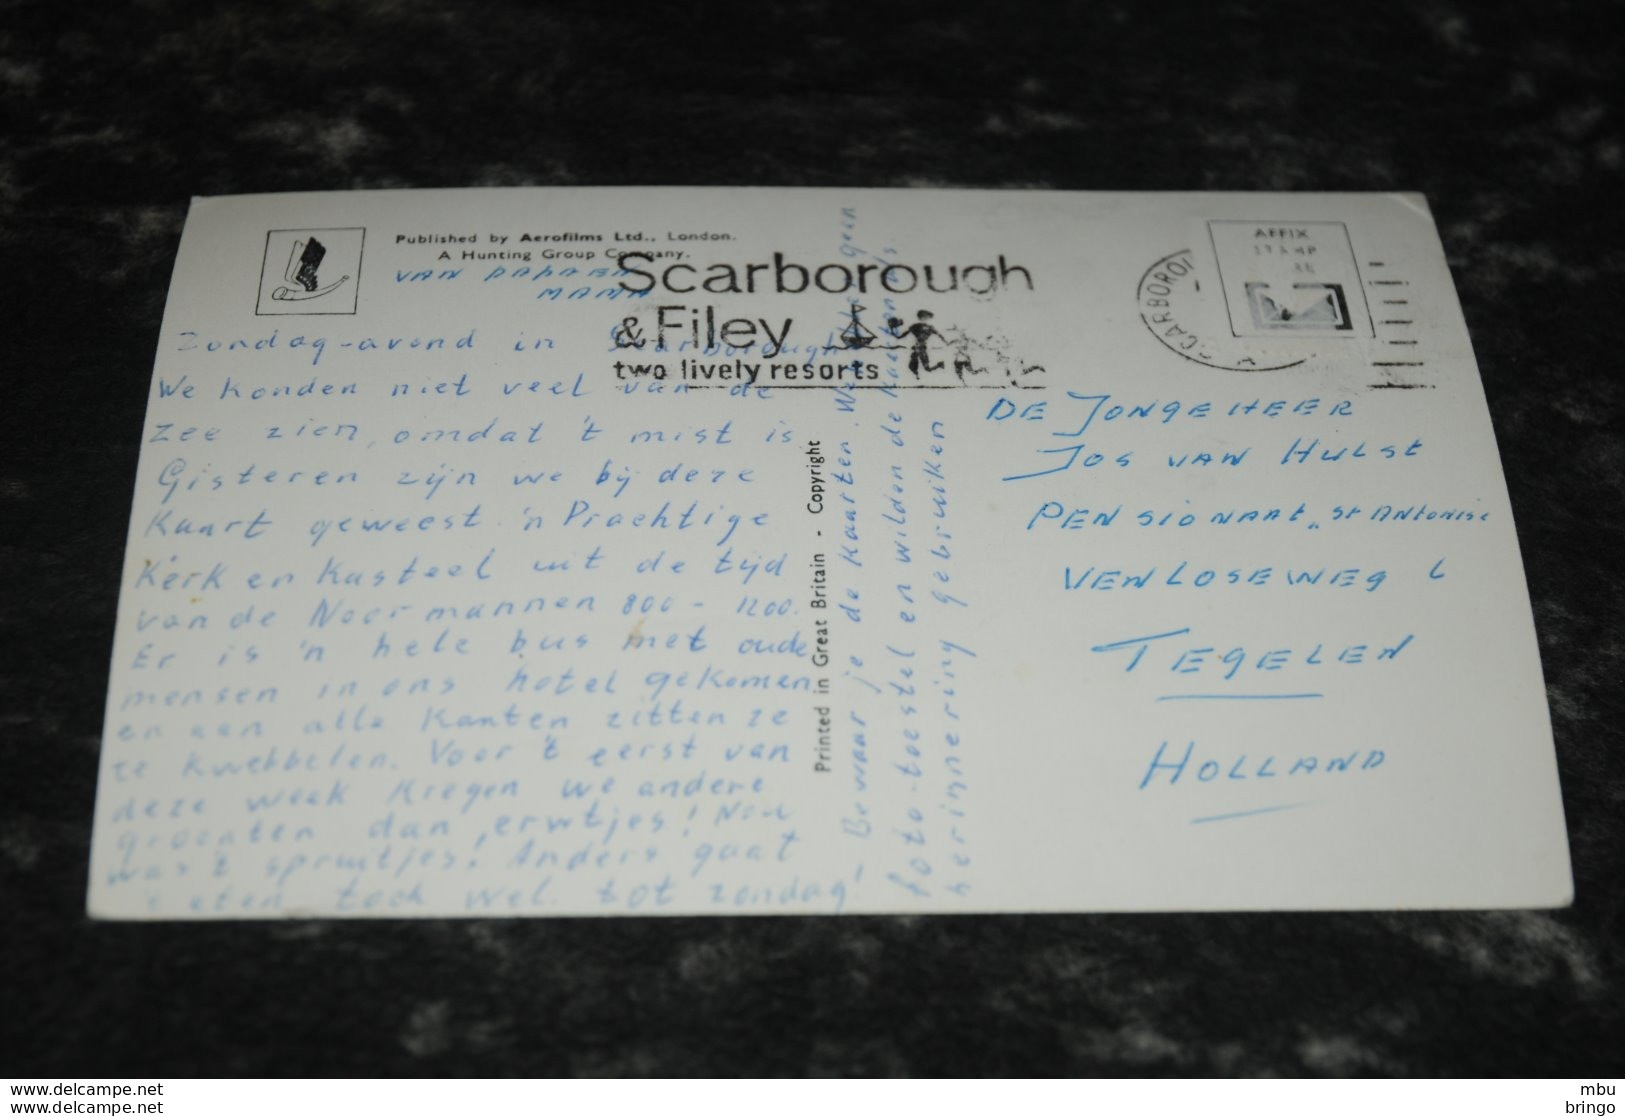 Published by Aerofilms Ltd., London.
A Hunting Group Company.
VAN PAPA EN
MAMA
Scarborough
& Filey
two lively resorts
SCARBOROU
AFFIX
Zondag-avond in Scarborough
We konden niet veel van de
zee zien, omdat 't mist is
Gisteren zijn we bij deze
kaart geweest 'n Prachtige
kerk en kasteel uit de tijd
van de Noormannen 800 - 1200.
Er is 'n hele bus met oude
mensen in ons hotel gekomen
en aan alle kanten zitten ze
te kwebbelen. Voor 't eerst van
deze week kregen we andere
groenten dan erwtjes! Nou
was 't spruitjes! Anders gaat
't eten toch wel. tot zondag!
Printed in Great Britain - Copyright
Bewaar je de kaarten. We geen
foto-toestel en wilden de kaarten als
herinnering gebruiken
DE JONGEHEER
JOS VAN HULST
PENSIONAAT „St ANTONIUS
VENLOSEWEG
TEGELEN
HOLLAND
www.delcampe.net
www.delcampe.net
mbu
bringo